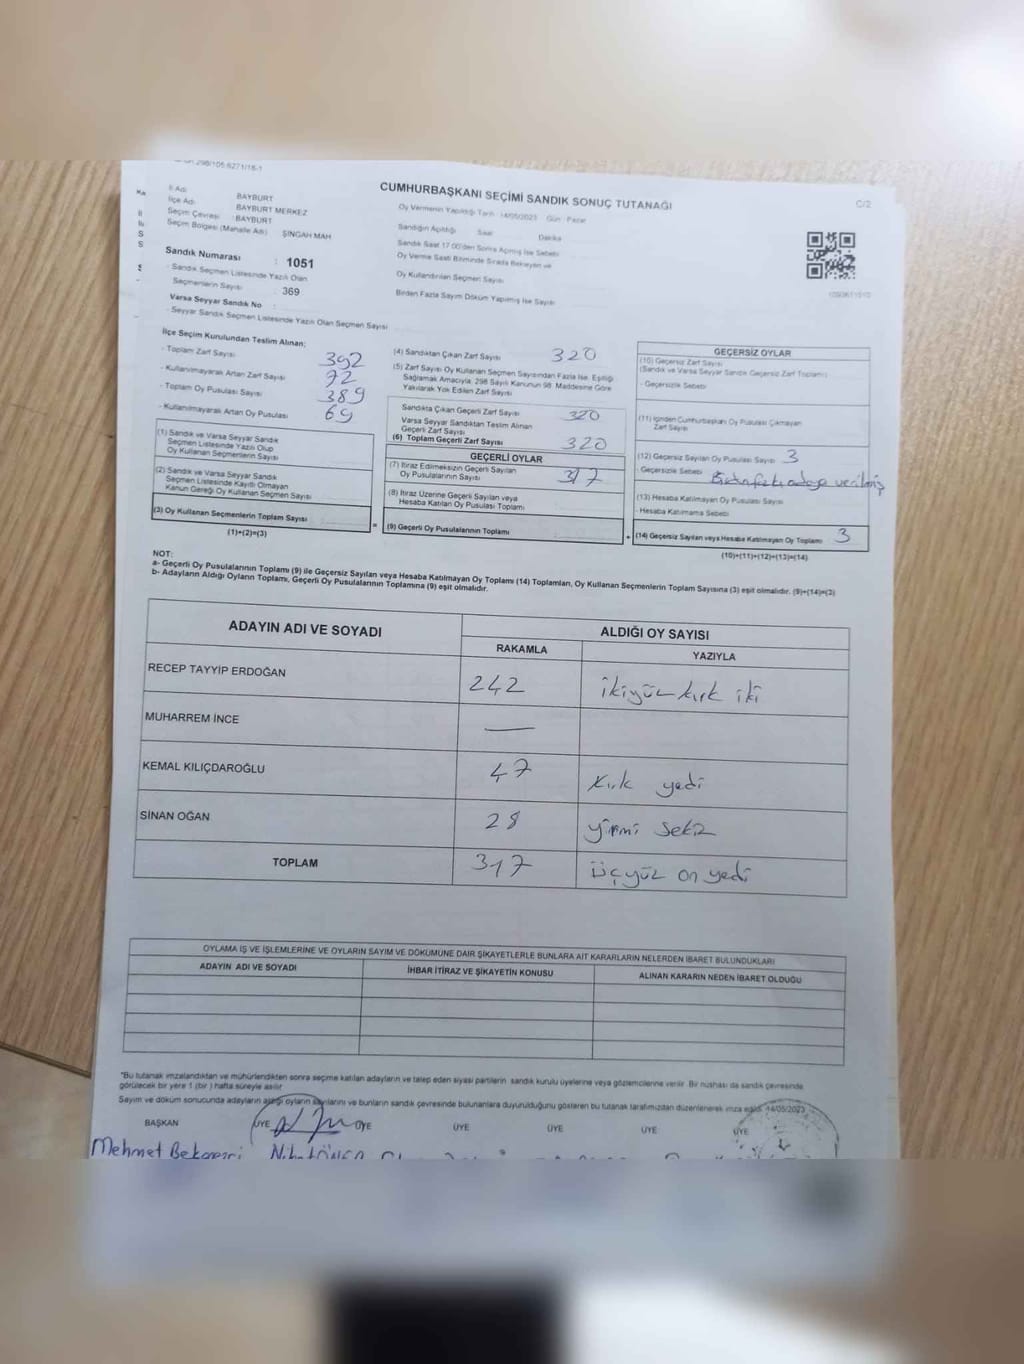 298/105:6271/18-1
CUMHURBAŞKANI SEÇİMİ SANDIK SONUÇ TUTANAĞI
C/2
İl Adı BAYBURT
İlçe Adı BAYBURT MERKEZ
Seçim Çevresi : BAYBURT
Seçim Bölgesi (Mahalle Adı) ŞİNGAH MAH
Sandık Numarası : 1051
- Sandık Seçmen Listesinde Yazılı Olan
Seçmenlerin Sayısı : 369
Varsa Seyyar Sandık No :
- Seyyar Sandık Seçmen Listesinde Yazılı Olan Seçmen Sayısı
Oy Vermenin Yapıldığı Tarih : 14/05/2023 Gün : Pazar
Sandığın Açıldığı Saat Dakika
Sandık Saat 17.00'den Sonra Açılmış İse Sebebi
Oy Verme Saati Bitiminde Sırada Bekleyen ve
Oy Kullandırılan Seçmen Sayısı
Birden Fazla Sayım Döküm Yapılmış İse Sayısı
İlçe Seçim Kurulundan Teslim Alınan;
- Toplam Zarf Sayısı 392
- Kullanılmayarak Artan Zarf Sayısı 72
- Toplam Oy Pusulası Sayısı 389
- Kullanılmayarak Artan Oy Pusulası 69
(1) Sandık ve Varsa Seyyar Sandık
Seçmen Listesinde Yazılı Olup
Oy Kullanan Seçmenlerin Sayısı
(2) Sandık ve Varsa Seyyar Sandık
Seçmen Listesinde Kayıtlı Olmayan
Kanun Gereği Oy Kullanan Seçmen Sayısı
(3) Oy Kullanan Seçmenlerin Toplam Sayısı
(1)+(2)=(3)
(4) Sandıktan Çıkan Zarf Sayısı 320
(5) Zarf Sayısı Oy Kullanan Seçmen Sayısından Fazla İse, Eşitliği
Sağlamak Amacıyla, 298 Sayılı Kanunun 98. Maddesine Göre
Yakılarak Yok Edilen Zarf Sayısı
Sandıkta Çıkan Geçerli Zarf Sayısı 320
Varsa Seyyar Sandıktan Teslim Alınan
Geçerli Zarf Sayısı
(6) Toplam Geçerli Zarf Sayısı 320
GEÇERLİ OYLAR
(7) İtiraz Edilmeksizin Geçerli Sayılan
Oy Pusulalarının Sayısı 317
(8) İtiraz Üzerine Geçerli Sayılan veya
Hesaba Katılan Oy Pusulası Toplamı
(9) Geçerli Oy Pusulalarının Toplamı
GEÇERSİZ OYLAR
(10) Geçersiz Zarf Sayısı
(Sandık ve Varsa Seyyar Sandık Geçersiz Zarf Toplamı)
- Geçersizlik Sebebi
(11) İçinden Cumhurbaşkanı Oy Pusulası Çıkmayan
Zarf Sayısı
(12) Geçersiz Sayılan Oy Pusulası Sayısı 3
- Geçersizlik Sebebi Birden fazla adaya verilmiş
(13) Hesaba Katılmayan Oy Pusulası Sayısı
- Hesaba Katılmama Sebebi
(14) Geçersiz Sayılan veya Hesaba Katılmayan Oy Toplamı 3
(10)+(11)+(12)+(13)=(14)
NOT:
a- Geçerli Oy Pusulalarının Toplamı (9) ile Geçersiz Sayılan veya Hesaba Katılmayan Oy Toplamı (14) Toplamları, Oy Kullanan Seçmenlerin Toplam Sayısına (3) eşit olmalıdır. (9)+(14)=(3)
b- Adayların Aldığı Oyların Toplamı, Geçerli Oy Pusulalarının Toplamına (9) eşit olmalıdır.
ADAYIN ADI VE SOYADI ALDIĞI OY SAYISI
RAKAMLA YAZIYLA
RECEP TAYYİP ERDOĞAN 242 ikiyüz kırk iki
MUHARREM İNCE —
KEMAL KILIÇDAROĞLU 47 Kırk yedi
SİNAN OĞAN 28 yirmi sekiz
TOPLAM 317 üçyüz on yedi
OYLAMA İŞ VE İŞLEMLERİNE VE OYLARIN SAYIM VE DÖKÜMÜNE DAİR ŞİKAYETLERLE BUNLARA AİT KARARLARIN NELERDEN İBARET BULUNDUKLARI
ADAYIN ADI VE SOYADI İHBAR İTİRAZ VE ŞİKAYETİN KONUSU ALINAN KARARIN NEDEN İBARET OLDUĞU
"Bu tutanak imzalandıktan ve mühürlendikten sonra seçime katılan adayların ve talep eden siyasi partilerin sandık kurulu üyelerine veya gözlemcilerine verilir. Bir nüshası da sandık çevresinde
görülecek bir yere 1 (bir ) hafta süreyle asılır
Sayım ve döküm sonucunda adayların aldığı oyların sayılarını ve bunların sandık çevresinde bulunanlara duyurulduğunu gösteren bu tutanak tarafımızdan düzenlenerek imza edildi. 14/05/2023
BAŞKAN ÜYE ÜYE ÜYE ÜYE ÜYE ÜYE
Mehmet